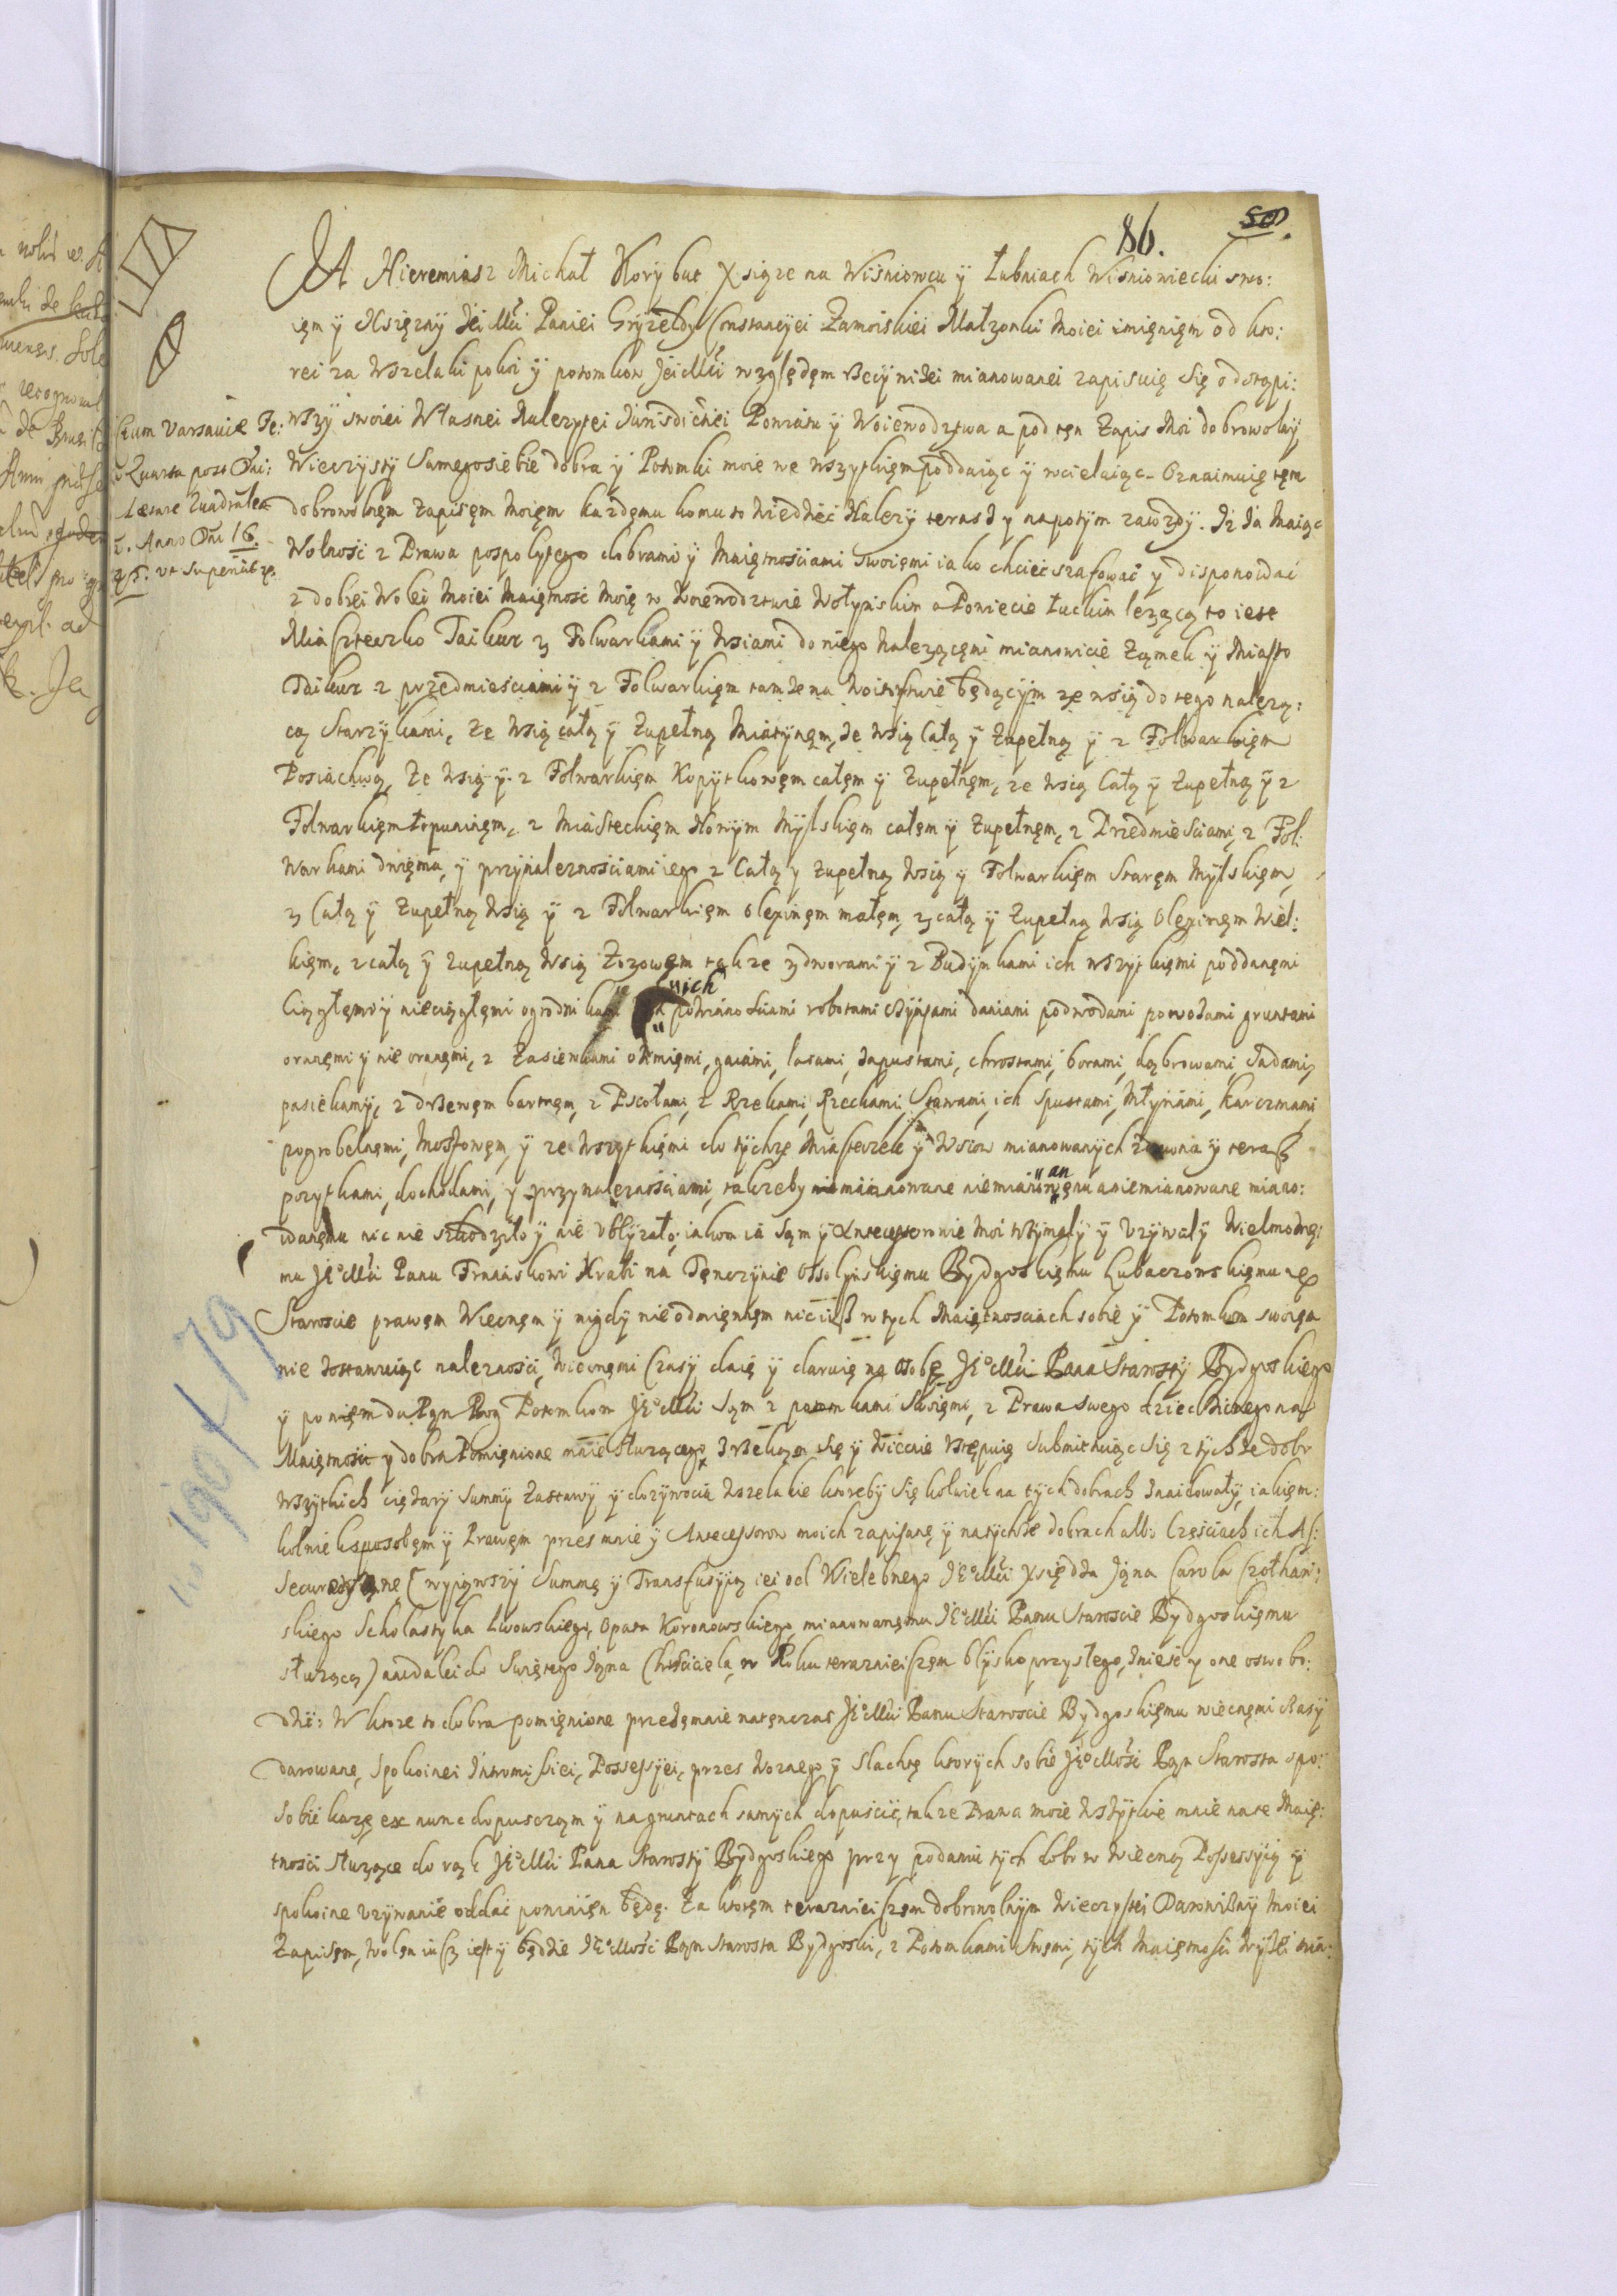 86.
50.
JA Hieremiasz Michał Korybut Xsiąze na Wiśniowcu ÿ Łubniach Wisniowiecki swo:
ięm ÿ Xsięzny Jei Mći Paniei Gryzeldy Constancÿei Zamoiskiei Małzonki Moiei imięnięm od kto:
rei za wszelaki pokoi ÿ potomkow Jei Mći względęm Rzeczÿ nizei mianowanei zapisuię się odstąpi:
wszÿ swoiei Własnei Nalezytei Jurisdictiei Powiatu ÿ Woiewodztwa a pod ten Zapis Moi dobrowolnÿ
Wieczysty Samegosiebie dobra ÿ Potomki moie we wszytkięm poddaiąc ÿ wcielaiąc. Oznaimuię tęm
dobrowolnęm Zapisęm Moięm kazdęmu komu to wiedziec Nalezÿ teraz y napotÿm zawzdÿ. Iz Ja Maiąc
Wolnosc z Prawa pospolytego dobrami ÿ Maiętnosciami swoięmi iako chciec szafowac y disponowac
z dobrei Wolei Moiei Maiętnosc Moię w Woiewodztwie Wołynskim a Powiecie Łuckim lezącą to iest
Miasteczko Taikur z Folwarkami ÿ Wsiami do niego Nalezącęmi mianowicie Zamek ÿ Miasto
Taikur z przedmiesciami ÿ z Folwarkięm tamze na Woitostwie będącÿm ze wsią do tego nalezą:
cą Starzÿkami, Ze Wsią całą ÿ Zupełną Miatÿnęm, Ze Wsią Całą ÿ Zupełną ÿ z Folwarkięm
Posiachwą, Ze Wsią ÿ z Folwarkięm Kopytkowęm całęm ÿ Zupełnęm, ze Wsią Całą ÿ Zupełną ÿ z
Folwarkięm Łopuninęm, z Miasteckięm Nowÿm Mylskięm całęm ÿ Zupełnęm, z Przedmiesciami, z Fol:
Warkami dwięma, ÿ przÿnaleznosciami iego z Całą y Zupełną Wsią y Folwarkięm Staręm Mylskięm,
z Całą ÿ Zupełną Wsią ÿ z Folwarkięm Olexinęm małęm, z całą ÿ Zupełną Wsią Olexinęm Wiel:
kięm, z całą ÿ zupełną Wsią Zozowęm takze z dworami ÿ z Budynkami ich wszytkięmi poddanęmi
Ciągłęmi ÿ nieciągłęmi ogrodnikami ich powinnosciami robotami czynszami daniami podwodami powozami gruntami
oranęmi ÿ nie oranęmi, z Zasiewkami ozimięmi, gaiami, lasami, zapustami, chrostami, borami, dąbrowami, Sadami,
pasiekamÿ, z drzewęm bartnęm, z Pscołami, z Rzekami, Rzeckami, Stawami, ich Spustami, Młynami, karczmami,
pogrobelnęmi, Mostowęm, ÿ ze wszytkięmi do tÿchze Miasteczek ÿ Wsiow mianowanÿch zdawna ÿ terasz
pozytkami, dochodami, y przynaleznosciami, takzeby mianowane niemianowanęmu aniemianowane miano:
wanęmu nic nie szkodziło ÿ nie ubłyzało, iakom ia sąm ÿ Antecessorowie Moi trzymalÿ ÿ Vzywalÿ Wielmoznę:
mu Je° Mći Panu Franciskowi Hrabi na Tęnczynie Ossolynskięmu Bydgoskięmu Lubaczowskięmu etc
Staroscie prawęm Wiecnęm ÿ nigdÿ nieodmięnęm nic iusz w tych Maiętnosciach sobie ÿ Potomkom swoięm
nie zostawuiąc naleznosci, Wiecznęmi Czasÿ daię ÿ daruię na osobę Je° Mći Pana Starostÿ Bydgoskiego
ÿ po nięm Potomkom Je° Mći Sąm z potomkami Swoięmi, z Prawa swego dziedzicznego na
Maiętnosc y dobra Pomięnione mnie służącego, Zrzekąm się ÿ Wiecnie Vstępuię Submittuiąc się z tychze dobr
wszÿtkich cięzary Summÿ Zastawÿ ÿ dozywocia Wszelakie ktorebÿ się kolwiek na tÿch dobrach Znaidowałÿ, iakięm:
kolwiek sposobęm ÿ Prawęm przes mnie ÿ Antecessorow moich zapisane ÿ na tychze dobrach albo Częsciach ich As:
securowane (wyiąwszÿ Summę ÿ Transfusyią iei od Wielebnego Je° Mći Xiędza Jana Carola Czołhan:
skiego Scholastyka Lwowskiego, Opata Koronowskiego, mianowanęmu Je° Mći Panu Staroscie Bydgoskięmu
słuzącą) nadalei do Swiętego Jana Chrzciciela, w Roku terazniejszęm blysko przyszłego, Zniesc y one oswobo:
dzic: W ktore to dobra pomięnione przezęmnie natęnczas Je° Mći Panu Staroscie Bydgoskięmu wiecnęmi czasÿ
darowane, Spokoinei Intromissiei, Possessyei, przes Woznego ÿ Slachtę ktorych sobie Je° Mość Pąn Starosta spo:
sobi każę ex nunc dopuszcząm ÿ na gruntach samych dopuscic, takze Prawa moie wszÿtkie mnie na te Maię:
tnosci służące do rąk Je° Mći Pana Starostÿ Bydgoskiego przy podaniu tych dobr w Wiecną Possessyią ÿ
spokoine Vzywanie oddac powinięn będę. Za ktoręm terazniejszęm dobrowolnÿm Wieczystei Darowiznÿ Moiei
Zapisęm, Wolęn iusz iest ÿ będzie Je° Mość Pąn Starosta Bydgoski, z Potomkami Swęmi, tych Maiętnosci Wyzei mia:
Varsaviæ Fe:
Quarta post
Anno Dni 16
ut Supenib.